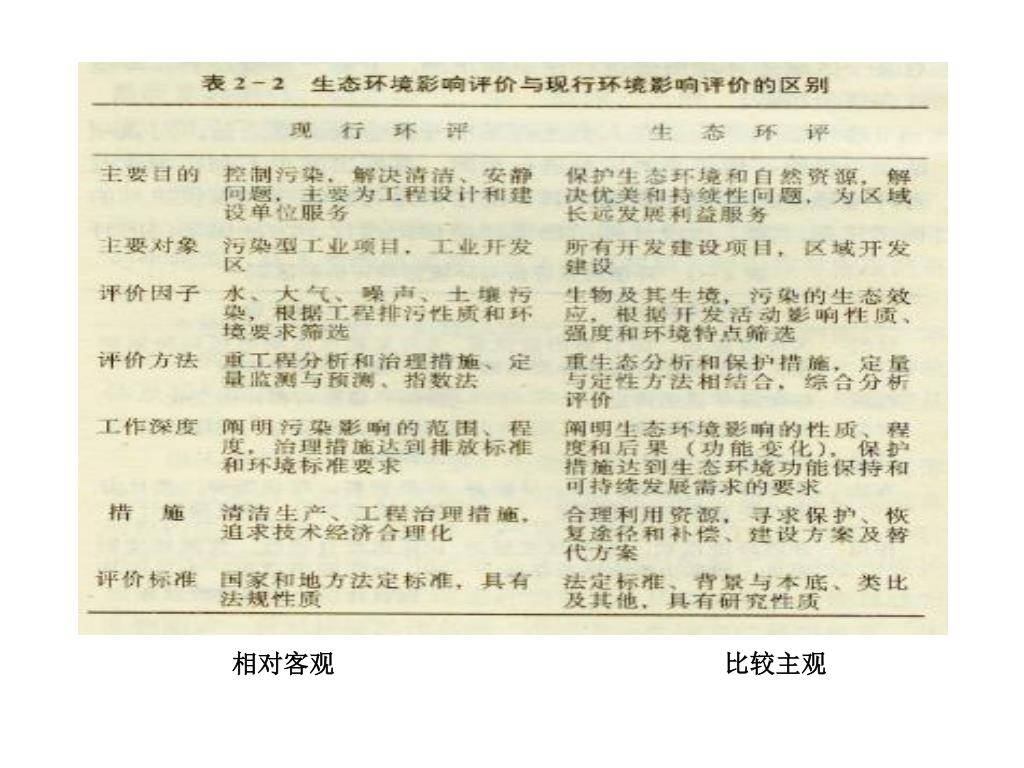 表2-2 生态环境影响评价与现行环境影响评价的区别
现行环评 生态环评
主要目的 控制污染，解决清洁、安静 保护生态环境和自然资源，解
问题，主要为工程设计和建 决优美和持续性问题，为区域
设单位服务 长远发展利益服务
主要对象 污染型工业项目，工业开发 所有开发建设项目，区域开发
区 建设
评价因子 水、大气、噪声、土壤污 生物及其生境，污染的生态效
染，根据工程排污性质和环 应，根据开发活动影响性质、
境要求筛选 强度和环境特点筛选
评价方法 重工程分析和治理措施、定 重生态分析和保护措施，定量
量监测与预测、指数法 与定性方法相结合，综合分析
评价
工作深度 阐明污染影响的范围、程 阐明生态环境影响的性质、程
度，治理措施达到排放标准 度和后果（功能变化），保护
和环境标准要求 措施达到生态环境功能保持和
可持续发展需求的要求
措施 清洁生产、工程治理措施， 合理利用资源，寻求保护、恢
追求技术经济合理化 复途径和补偿、建设方案及替
代方案
评价标准 国家和地方法定标准，具有 法定标准、背景与本底、类比
法规性质 及其他，具有研究性质
相对客观 比较主观